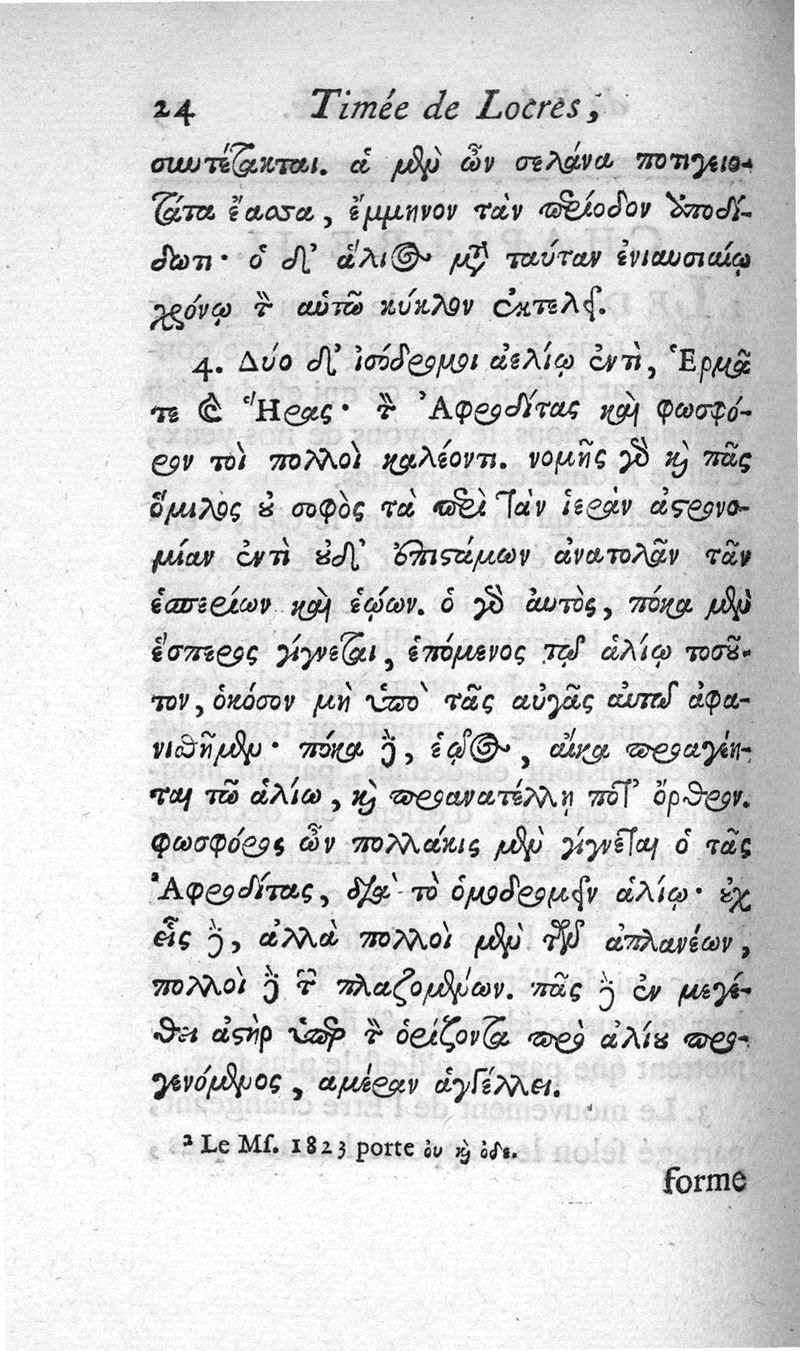 24 Timée de Locres,
συντέτακται. ἁ μὲν ὦν σελάνα ποτιγειο-
τάτα ἔασσα, ἔμμηνον τὰν περίοδον ἀποδί-
δωτι· ὁ δ' ἅλιος μετὰ ταύταν ἐνιαυσιαίῳ
χρόνῳ τὸν αὑτῶ κύκλον ἐκτελεῖ.
4. Δύο δ' ἰσόδρομοι ἀελίῳ ἐντὶ, Ἑρμᾶ
τε καὶ ᵃἭρας· τὸν Ἀφροδίτας καὶ φωσφό-
ρον τοὶ πολλοὶ καλέοντι. νομῆς γὰρ καὶ πᾶς
ὅμιλος οὐ σοφὸς τὰ περὶ τὰν ἱερὰν ἀστρονο-
μίαν ἐντὶ οὐδ' ἐπιστάμων ἀνατολᾶν τᾶν
ἑσπερίων καὶ ἑῴων. ὁ γὰρ ἀυτὸς, πόκα μὲν
ἕσπερος γίγνεται, ἑπόμενος τῷ ἁλίῳ τοσοῦ-
τον, ὁκόσον μὴ ὑπὸ τᾶς αὐγᾶς αὐτῶ ἀφα-
νισθῆμεν· πόκα δὲ, ἑῷος, αἴκα προαγέη-
ται τῶ ἁλίω, καὶ προανατέλλῃ ποτ' ὄρθρον.
φωσφόρος ὦν πολλάκις μὲν γίγνεται ὁ τᾶς
Ἀφροδίτας, διὰ τὸ ὁμοδρομεῖν ἁλίῳ· οὐχ
εἷς δὲ, ἀλλὰ πολλοὶ μὲν τῶν ἀπλανέων,
πολλοὶ δὲ τῶν πλαζομένων. πᾶς δὲ ἐν μεγέ-
θει ἀστὴρ ὑπὲρ τὸν ὁρίζοντα πρὸ ἁλίου προ-
γενόμενος, ἁμέραν ἀγγέλλει.
ᵃ Le Mſ. 1823 porte ὁν καὶ ὁδε.
forme